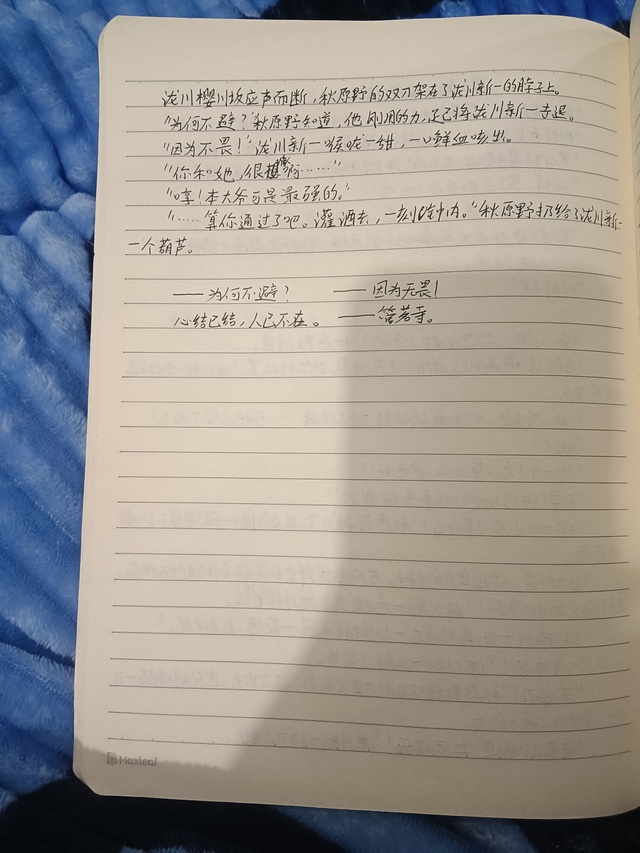 泷川樱川坂应声而断，秋原野的双刀架在了泷川新一的脖子上。
“为何不避？”秋原野知道，他刚用的力，足已将泷川新一击退。
“因为不畏！”泷川新一喉咙一甜，一口鲜血咳出。
“你和她，很像……”
“哼！本大爷可是最强的。”
“……算你通过了吧。灌酒去，一刻钟内。”秋原野扔给了泷川新一
一个葫芦。
——为何不避？ ——因为无畏！
心结已结，人已不在。 ——管若寺。
Maxleaf